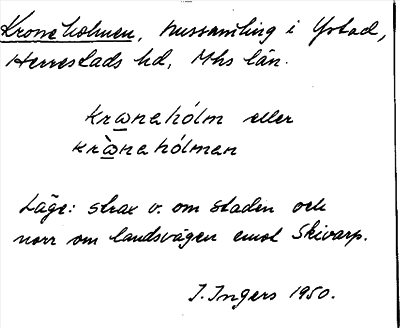 Kroneholmen, hussamling i Ystad,
Herrestads hd, Mhs län.
krωnahólm eller
krὼnahólmen
Läge: strax v. om staden och
norr om landsvägen emot Skivarp.
I. Ingers 1950.